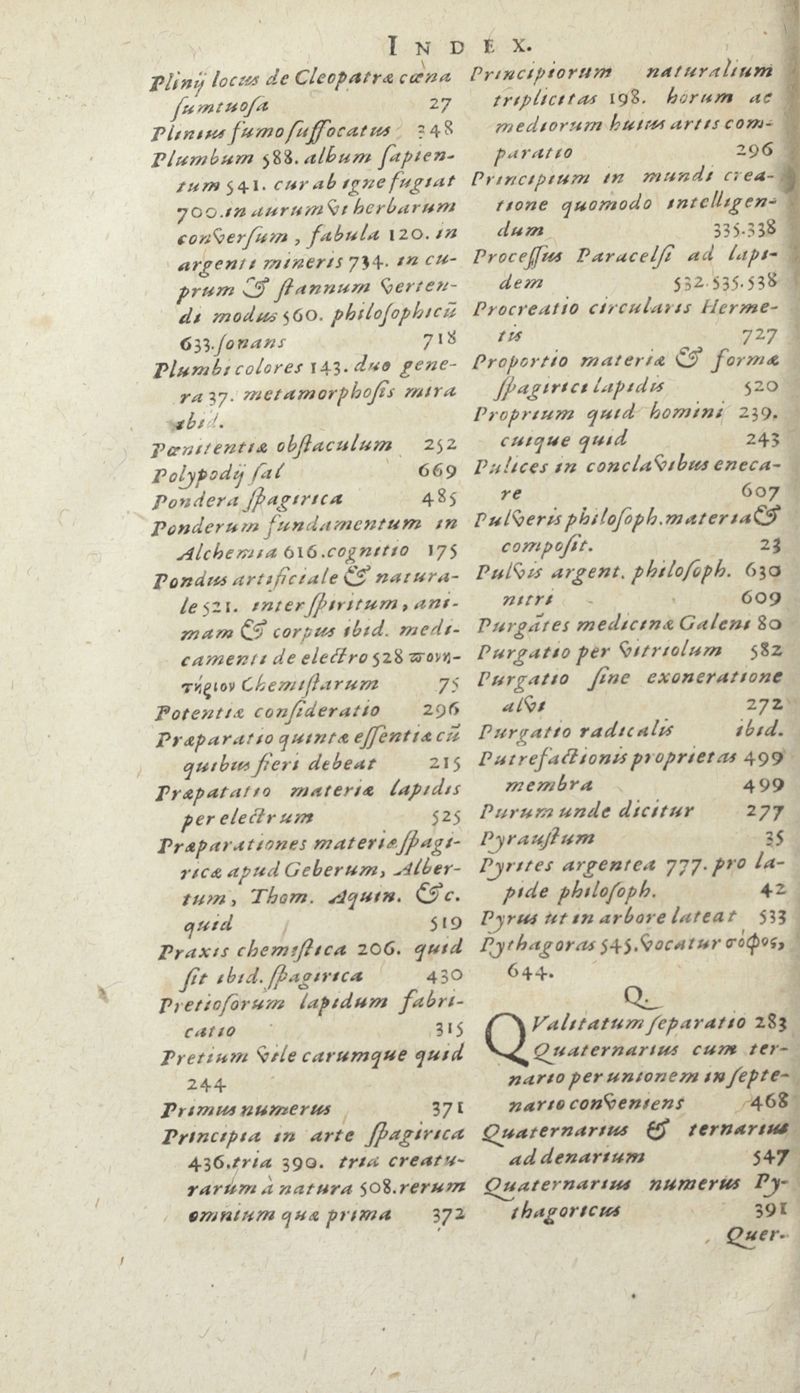 INDEX.
Plinij locus de Cleopatræ cœna
ſumtuoſa 27
Plinius fumo ſuffocatus 348
Plumbum 588. album ſapien-
tum 541. cur ab igne fugiat
700. in aurum vt herbarum
converſum, fabula 120. in
argenti mineris 734. in cu-
prum & ſtannum verten-
di modus 560. philoſophicū
633. ſonans 718
Plumbi colores 143. duo gene-
ra 37. metamorphoſis mira
ibid.
Pœnitentiæ obſtaculum 252
Polypodij ſal 669
Pondera ſpagirica 485
Ponderum fundamentum in
Alchemia 616. cognitio 175
Pondus artificiale & natura-
le 521. inter ſpiritum, ani-
mam & corpus ibid. medi-
camenti de electro 528 πονη-
τήριον Chemiſtarum 75
Potentiæ conſideratio 296
Præparatio quintæ eſſentiæ cū
quibus fieri debeat 215
Præpatatio materiæ lapidis
per electrum 525
Præparationes materiæ ſpagi-
ricæ apud Geberum, Alber-
tum, Thom. Aquin. &c.
quid 519
Praxis chemiſtica 206. quid
ſit ibid. ſpagirica 430
Pretioſorum lapidum fabri-
catio 315
Pretium vile carumque quid
244
Primus numerus 371
Principia in arte ſpagirica
436. tria 390. tria creatu-
rarum à natura 508. rerum
omnium quæ prima 372
Principiorum naturalium
triplicitas 198. horum ac
mediorum huius artis com-
paratio 296
Principium in mundi crea-
tione quomodo intelligen-
dum 335.338
Proceſſus Paracelſi ad lapi-
dem 532.535.538
Procreatio circularis Herme-
tis 727
Proportio materiæ & formæ
ſpagirici lapidis 520
Proprium quid homini 239.
cuique quid 243
Pulices in conclavibus eneca-
re 607
Pulveris philoſoph. materia &
compoſit. 23
Pulvis argent. philoſoph. 630
nitri 609
Purgātes medicinæ Galeni 80
Purgatio per vitriolum 582
Purgatio ſine exoneratione
alvi 272
Purgatio radicalis ibid.
Putrefactionis proprietas 499
membra 499
Purum unde dicitur 277
Pyrauſtum 35
Pyrites argentea 777. pro la-
pide philoſoph. 42
Pyrus ut in arbore lateat 533
Pythagoras 545. vocatur σοφος,
644.
Q.
QValitatum ſeparatio 283
Quaternarius cum ter-
nario per unionem in ſepte-
nario conveniens 468
Quaternarius & ternarius
ad denarium 547
Quaternarius numerus Py-
thagoricus 391
Quer-